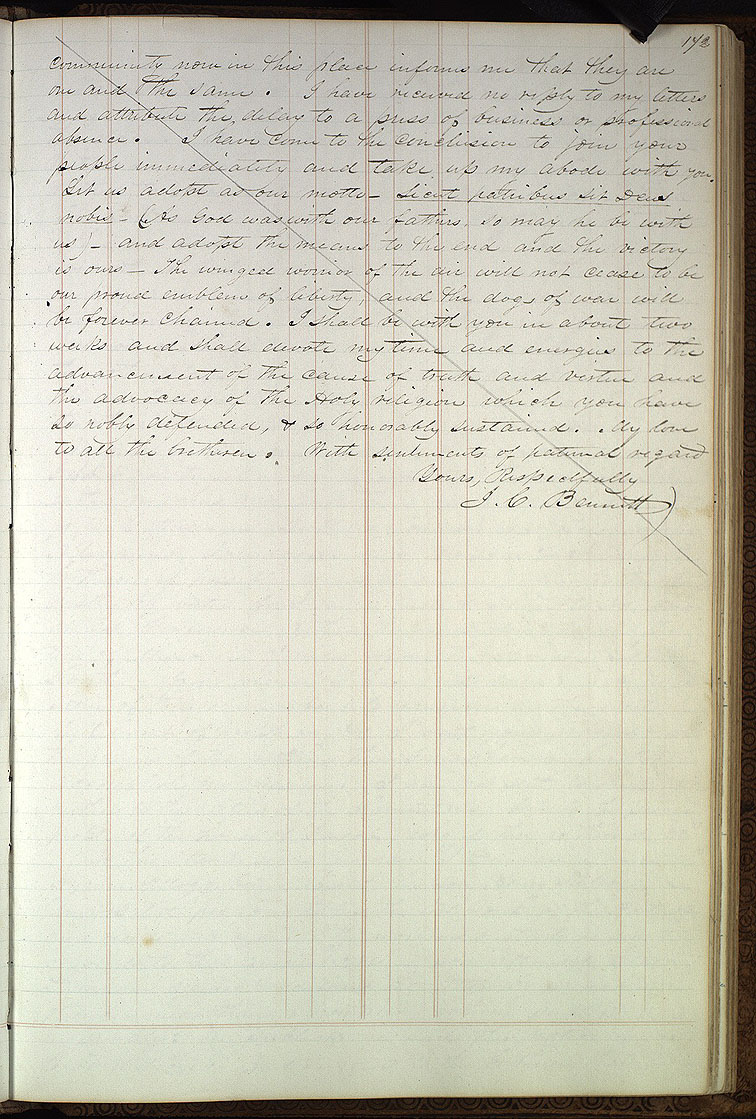 172
community now in this place informs me that they are
one and the same. I have received no reply to my letters
and attribute the delay to a press of business or professional
absence. I have come to the conclusion to join your
people immediately and take up my abode with you.
Let us adopt as our motto— Sicut patribus sit Deus
nobis— (As God was with our fathers, so may he be with
us)— and adopt the means to the end and the victory
is ours— The winged worrior of the air will not cease to be
our proud emblem of liberty, and the dogs of war will
be forever chained. I shall be with you in about two
weeks and shall devote my time and energies to the
advancement of the cause of truth and virtue and
the advocacy of the Holy religion which you have
so nobly defended, & so honorably sustained. My love
to all the bretheren. With sentiments of paternal regard
Yours, Respectfully
J. C. Bennett)